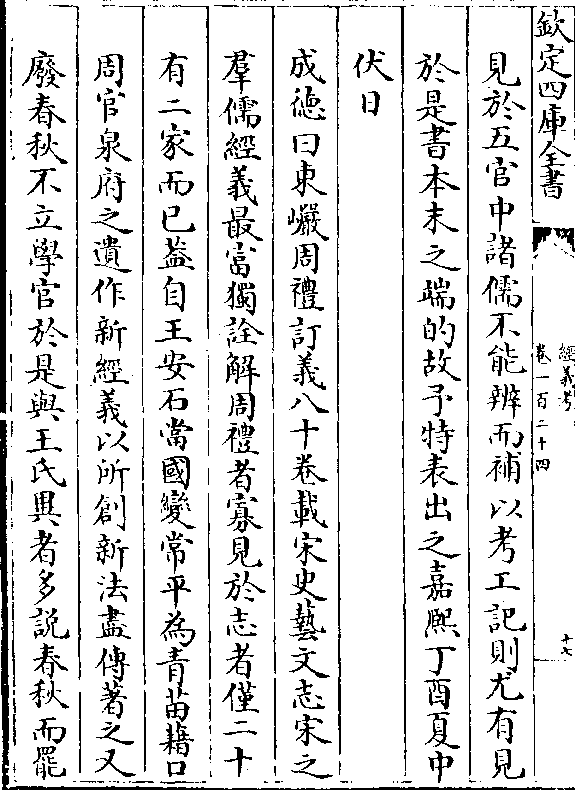 欽定四庫全書
經義考
卷一百二十四
十七
見於五官中諸儒不能辨而補以考工記則尤有見
於是書本末之端的故予特表出之嘉熙丁酉夏中
伏日
成德曰東巖周禮訂義八十卷載宋史藝文志宋之
羣儒經義最富獨詮解周禮者寡見於志者僅二十
有二家而已葢自王安石當國變常平為青苗藉口
周官泉府之遺作新經義以所創新法盡傳著之又
廢春秋不立學官於是與王氏異者多説春秋而罷